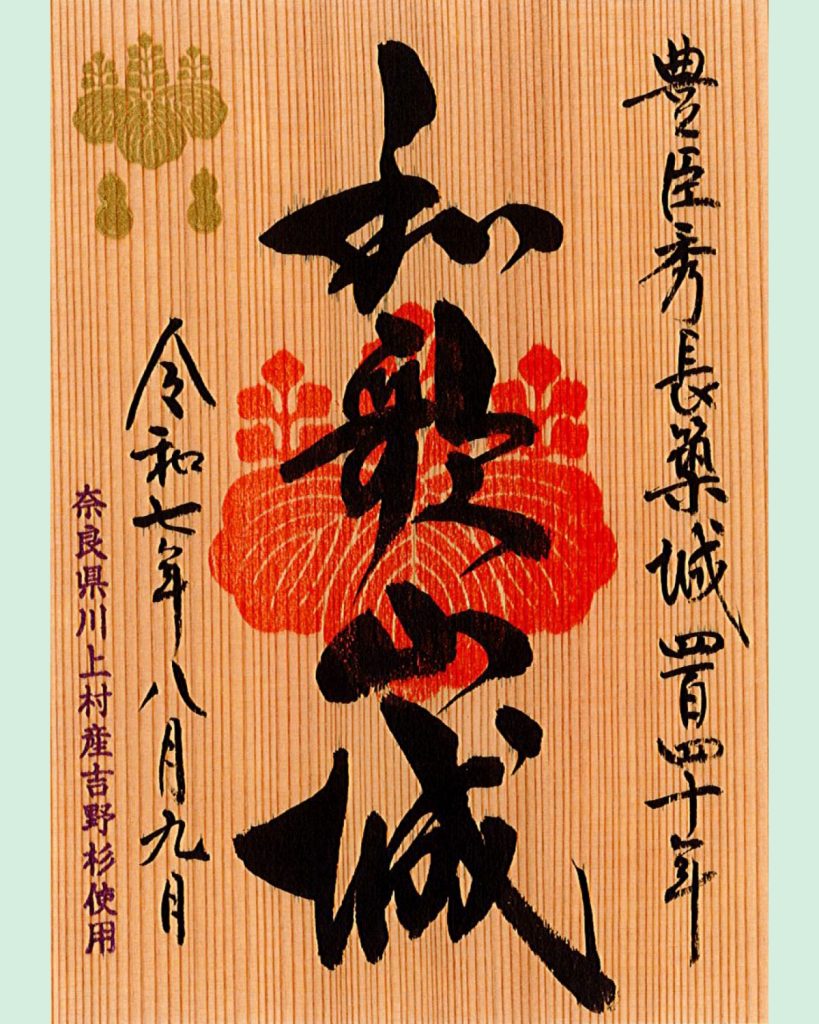 豊臣秀長築城四百四十年
和歌山城
令和七年八月九月
奈良県川上村産吉野杉使用